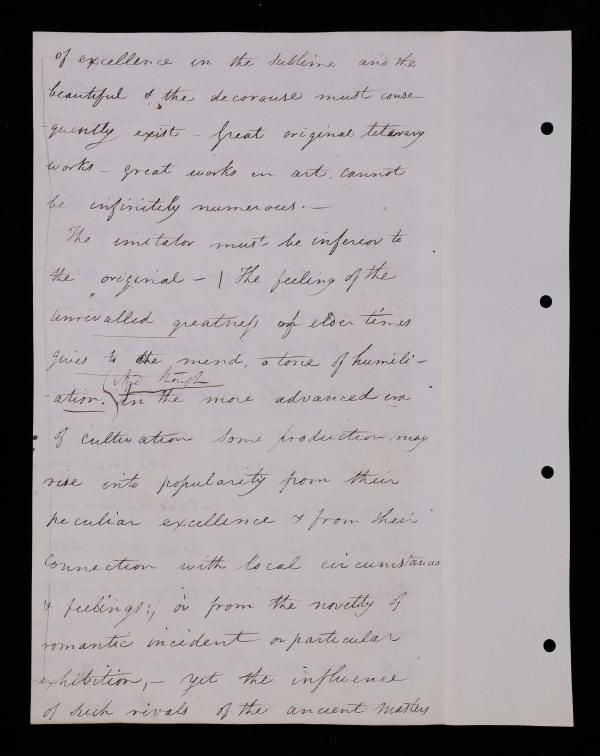 of excellence in the sublime and the
beautiful & the decorause must conse-
-quently exist - Great original literary
works - great works in art. cannot
be infinitely numerous. —
The imitator must be inferior to
the original - | The feeling of the
unrivalled greatness of elder times
gives to the mind, a tone of humili-
And though
-ation. In the more advanced era
of cultivation some production may
rise into popularity from their
peculiar excellence & from their
connection with local circumstances
& feelings:, or from the novelty of
romantic incident or particular
exhibition, - yet the influence
of such rivals of the ancient masters